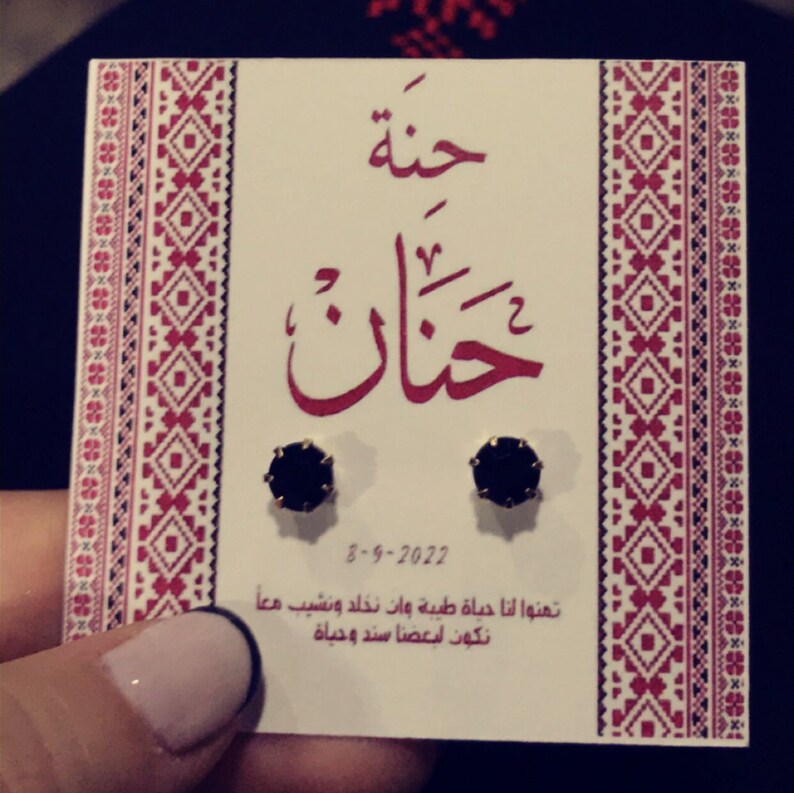 حِنَة
حَنَان
8-9-2022
تمنوا لنا حياة طيبة وان نخلد ونشيب معاً
نكون لبعضنا سند وحياة